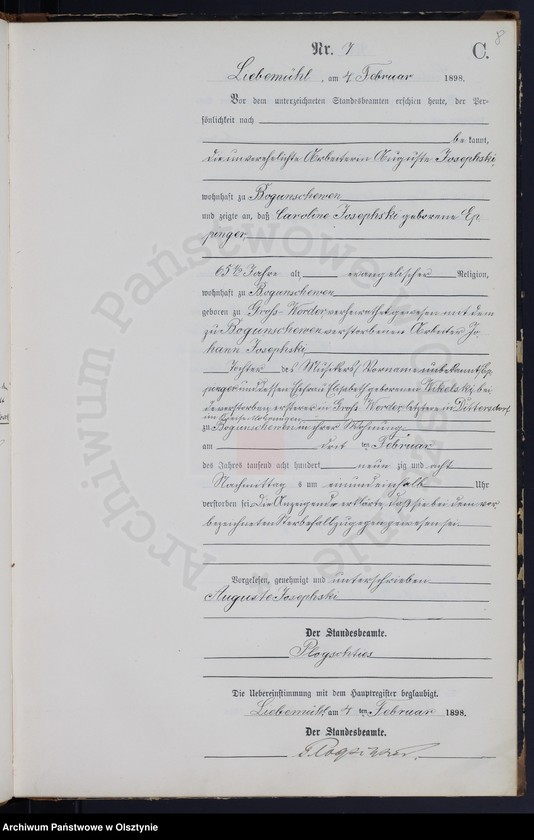 8
Nr. 7
C.
Liebemühl, am 4 Februar 1898.
Vor dem unterzeichneten Standesbeamten erschien heute, der Per-
sönlichkeit nach
be kannt,
die unverehelichte Arbeiterin Auguste Josephski,
wohnhaft zu Bogunschewen
und zeigte an, daß Caroline Josephski geborene Ep
pinger,
65 ½ Jahre alt evangelischer Religion,
wohnhaft zu Bogunschewen
geboren zu Groß-Werder, verheirathet gewesen mit dem
zu Bogunschewen verstorbenen Arbeiter Jo
hann Josephski,
Tochter des Vorname unbekannt Ep
pinger und dessen Ehefrau Elisabeth geborenen Nikolski bei
de verstorben ersterer in Groß Werder, letztere in Dittersdorf
zu Bogunschewen in ihrer Wohnung
am ten Februar
des Jahres tausend acht hundert neun zig und acht
Nachmittag s um ein und ein halb Uhr
verstorben sei. Die Anzeigende erklärte, daß sie bei dem vor
bezeichneten Sterbefall zugegen gewesen sei.
Vorgelesen, genehmigt und unterschrieben
Auguste Josephski
Der Standesbeamte.
Die Uebereinstimmung mit dem Hauptregister beglaubigt.
Liebemühl am 4 ten Februar 1898.
Der Standesbeamte.
Archiwum Państwowe w Olsztynie
Archiwum Państwowe w Olsztynie